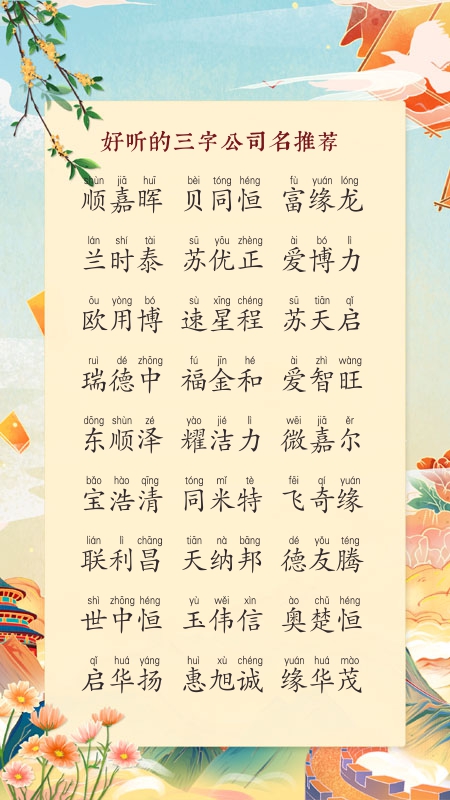 好听的三字公司名推荐
shùn jiā huī bèi tóng héng fù yuán lóng
顺嘉晖 贝同恒 富缘龙
lán shí tài sū yōu zhèng ài bó lì
兰时泰 苏优正 爱博力
ōu yòng bó sù xīng chéng sū tiān qǐ
欧用博 速星程 苏天启
ruì dé zhōng fú jīn hé ài zhì wàng
瑞德中 福金和 爱智旺
dōng shùn zé yào jié lì wēi jiā ěr
东顺泽 耀洁力 微嘉尔
bǎo hào qīng tóng mǐ tè fēi qí yuán
宝浩清 同米特 飞奇缘
lián lì chāng tiān nà bāng dé yǒu téng
联利昌 天纳邦 德友腾
shì zhōng héng yù wěi xìn ào chǔ héng
世中恒 玉伟信 奥楚恒
qǐ huá yáng huì xù chéng yuán huá mào
启华扬 惠旭诚 缘华茂